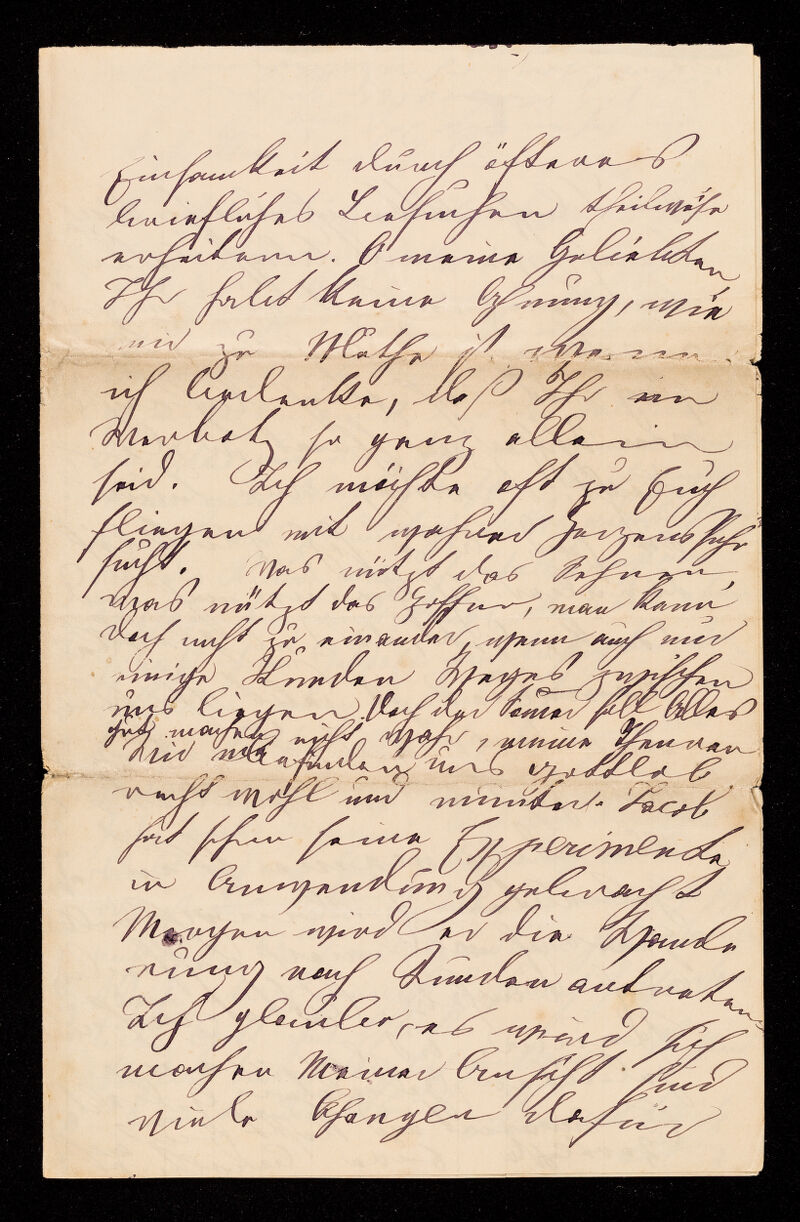 Einsamkeit durch öfteres
briefliches Besuchen theilweise
erheitern. O meine Geliebten
Ihr habt keine Ahnung, wie
mir zu Muthe ist wenn
ich bedenke, daß Ihr in
so ganz allein
seid. Ich möchte oft zu Euch
fliegen mit wahrer Herzenssehn
sucht. Was nützt das Sehnen,
was nützt das Hoffen, man kann
doch nicht zu einander, wenn auch nur
einige Stunden Weges zwischen
uns liegen. Doch der Somer soll Alles
gut machen nicht wahr, meine Theuren
Wir befinden uns gottlob
recht wohl und munter. Jacob
hat schon seine Experimente
in Anwendung gebracht
Morgen wird er die Wande
rung nach Kunden antreten
Ich glaube, es wird sich
machen Meiner Ansicht sind
viele Changen dafür